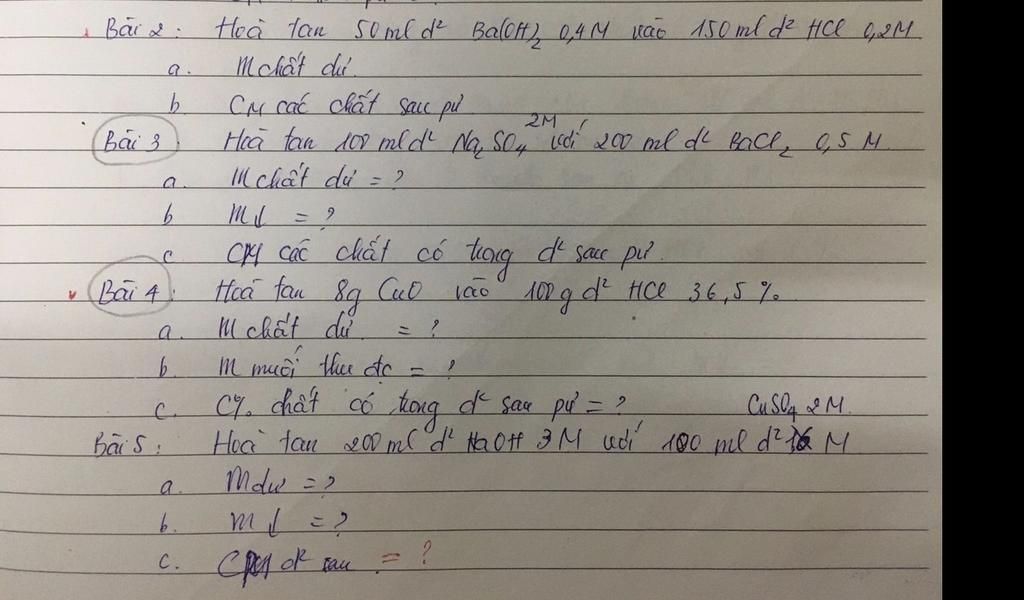 Bài 2: Hoà tan 50ml d² Ba(OH)₂ 0,4M vào 150ml d² HCl 0,2M
a. m chất dư
b. CM các chất sau pư
Bài 3: Hoà tan 100ml d² Na₂SO₄ 2M với 200 ml d² BaCl₂ 0,5 M
a. m chất dư = ?
b. m↓ = ?
c. CM các chất có trong d² sau pư.
Bài 4: Hoà tan 8g CuO vào 100g d² HCl 36,5%
a. m chất dư = ?
b. m muối thu đc = ?
c. C% chất có trong d² sau pư = ?
CuSO₄ 2M
Bài 5: Hoà tan 200ml d² NaOH 3M với 100 ml d² M
a. m dư = ?
b. m↓ = ?
c. CM d² sau = ?